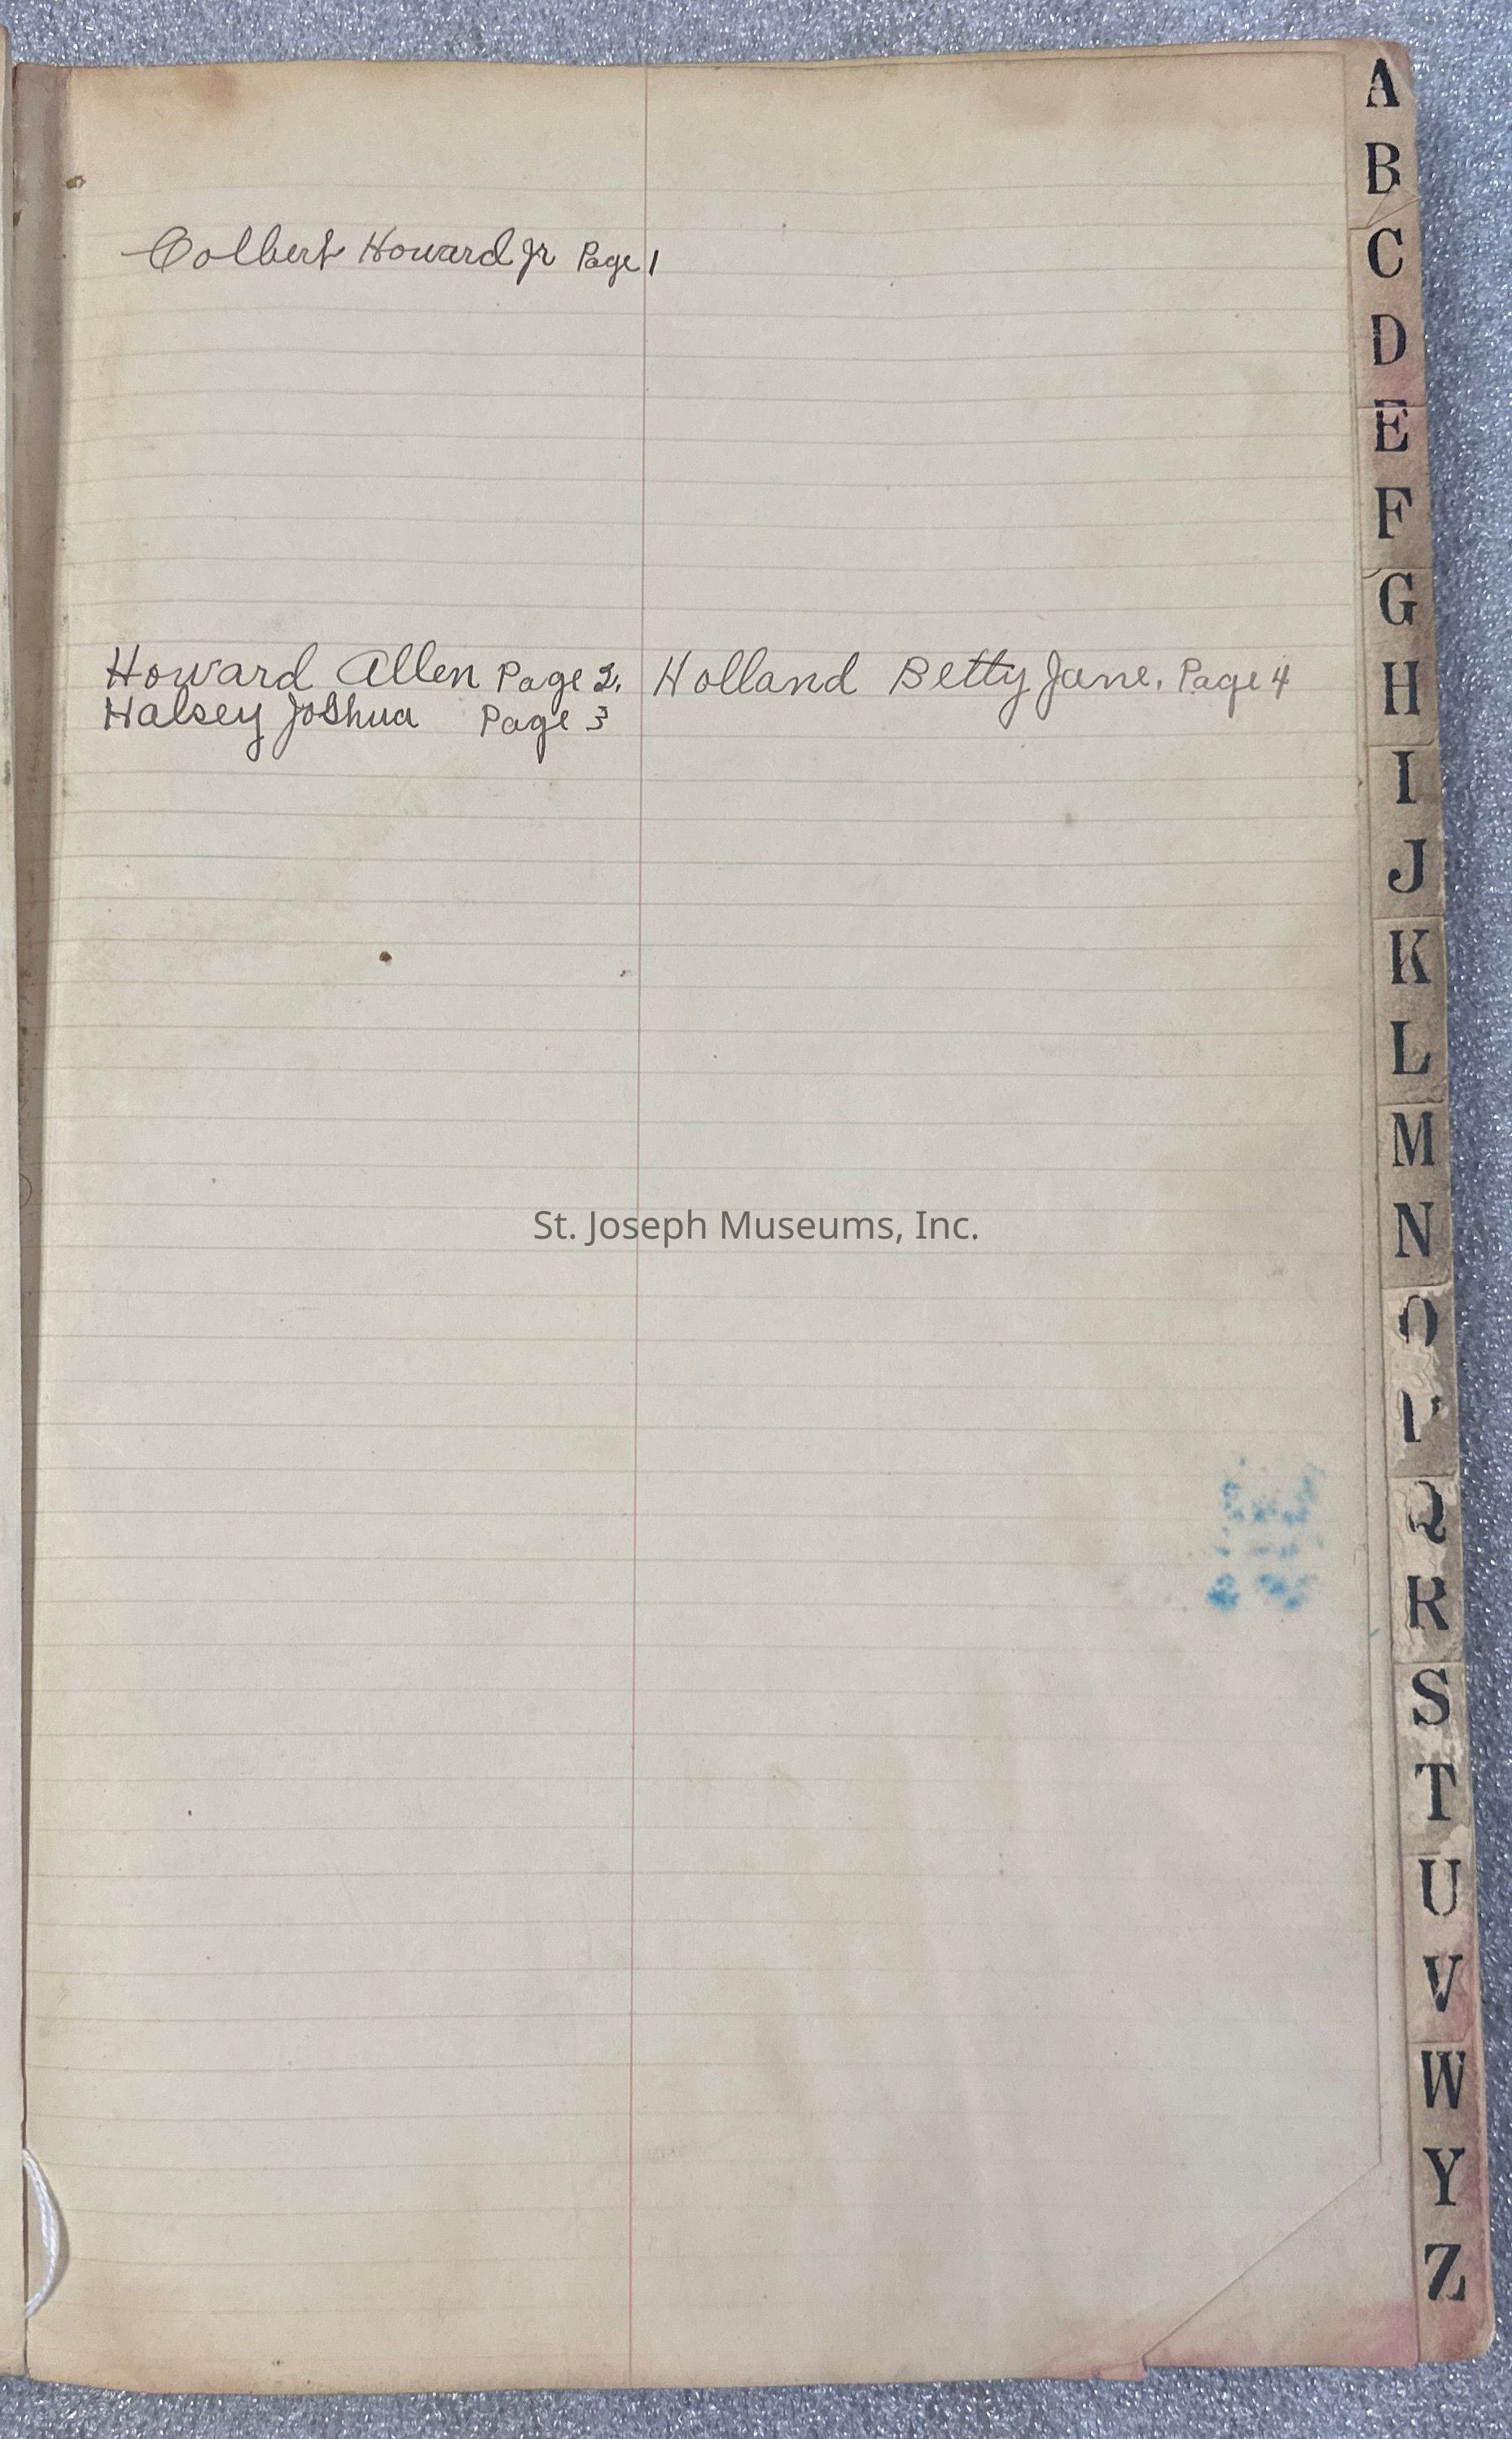 Colbert Howard Jr Page 1
Howard Allen Page 2. Holland Betty Jane. Page 4
Halsey Joshua Page 3
St. Joseph Museums, Inc.
A
B
C
D
E
F
G
H
I
J
K
L
M
N
O
P
Q
R
S
T
U
V
W
Y
Z